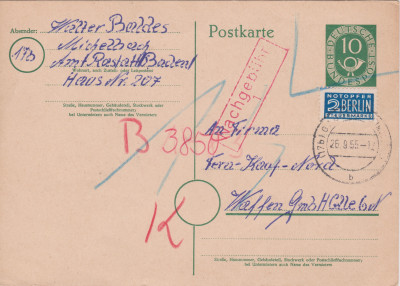 Absender:
Walter Baldes
17b
Michelbach
Amt Rastatt Baden
Wohnort, auch Zustell- oder Leitpostamt
Haus Nr. 207
Straße, Hausnummer, Gebäudeteil, Stockwerk oder Postschließfachnummer;
bei Untermietern auch Name des Vermieters
Postkarte
10
DEUTSCHE BUNDESPOST
NOTOPFER
2 BERLIN
STEUERMARKE
26.9.55
b
Nachgebühr
B 3850
K
An Firma
Hauf-Nord
Waffen GmbH
Straße, Hausnummer, Gebäudeteil, Stockwerk oder Postschließfachnummer;
bei Untermietern auch Name des Vermieters